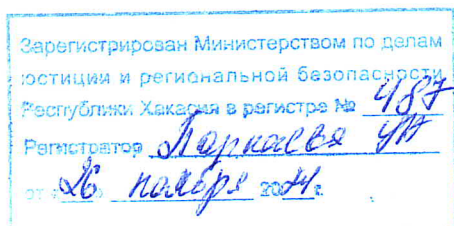 Зарегистрирован Министерством по делам
юстиции и региональной безопасности
Республики Хакасия в регистре № 487
Регистратор
от «26» ноября 2024 г.